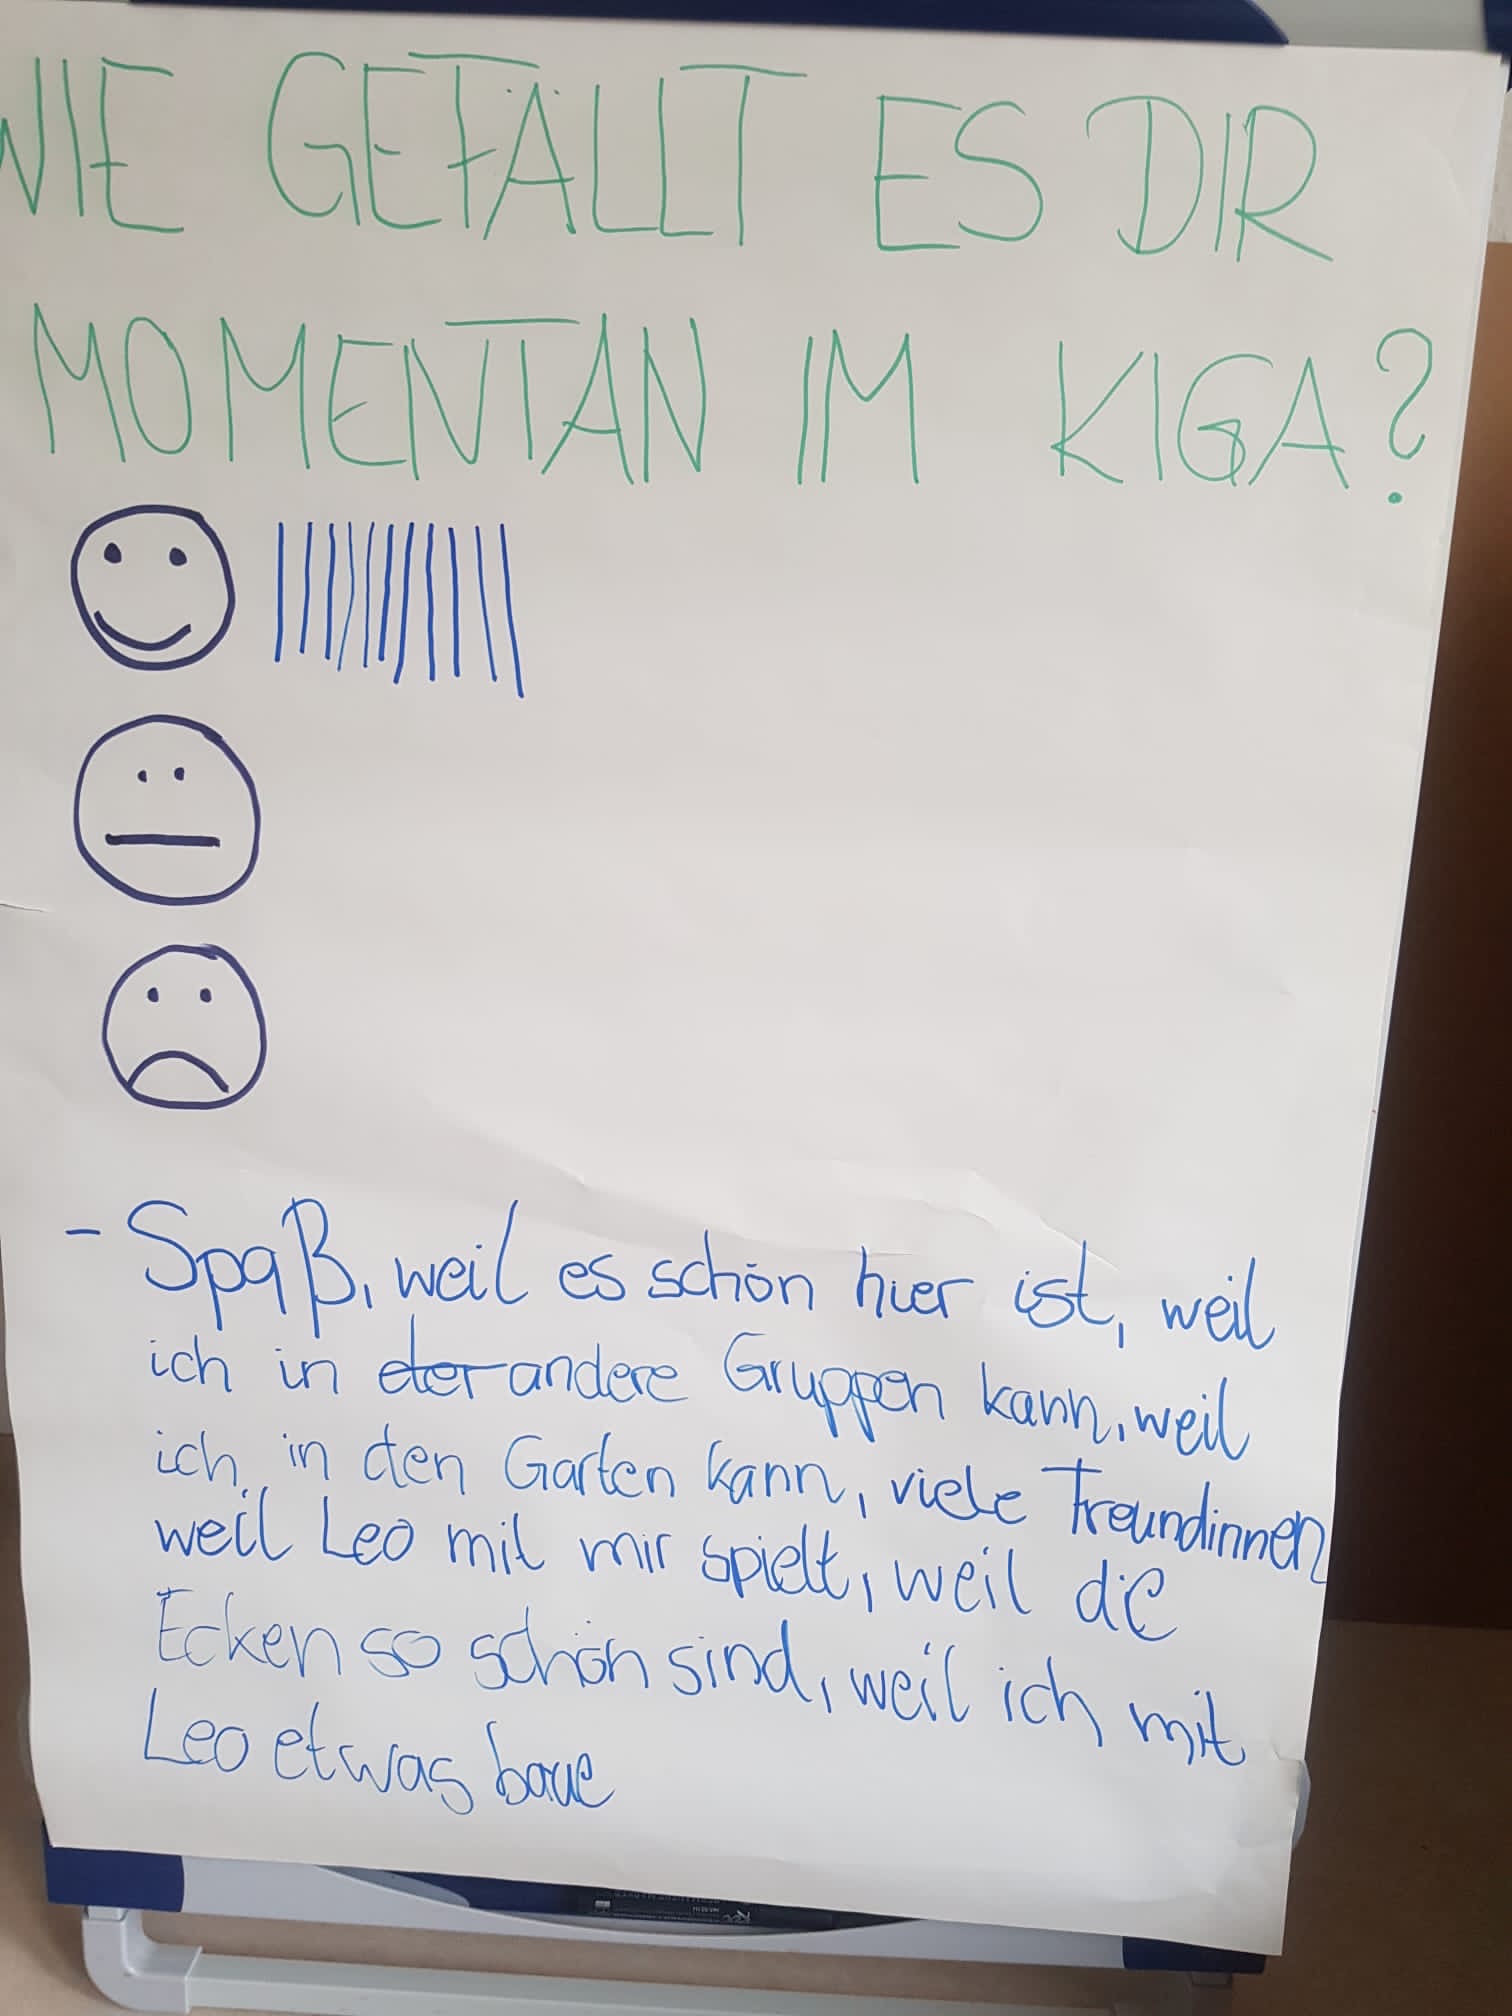 WIE GEFÄLLT ES DIR
MOMENTAN IM KIGA?
- Spaß, weil es schön hier ist, weil
ich in der andere Gruppen kann, weil
ich in den Garten kann, viele Freundinnen
weil Leo mit mir spielt, weil die
Ecken so schön sind, weil ich mit
Leo etwas baue